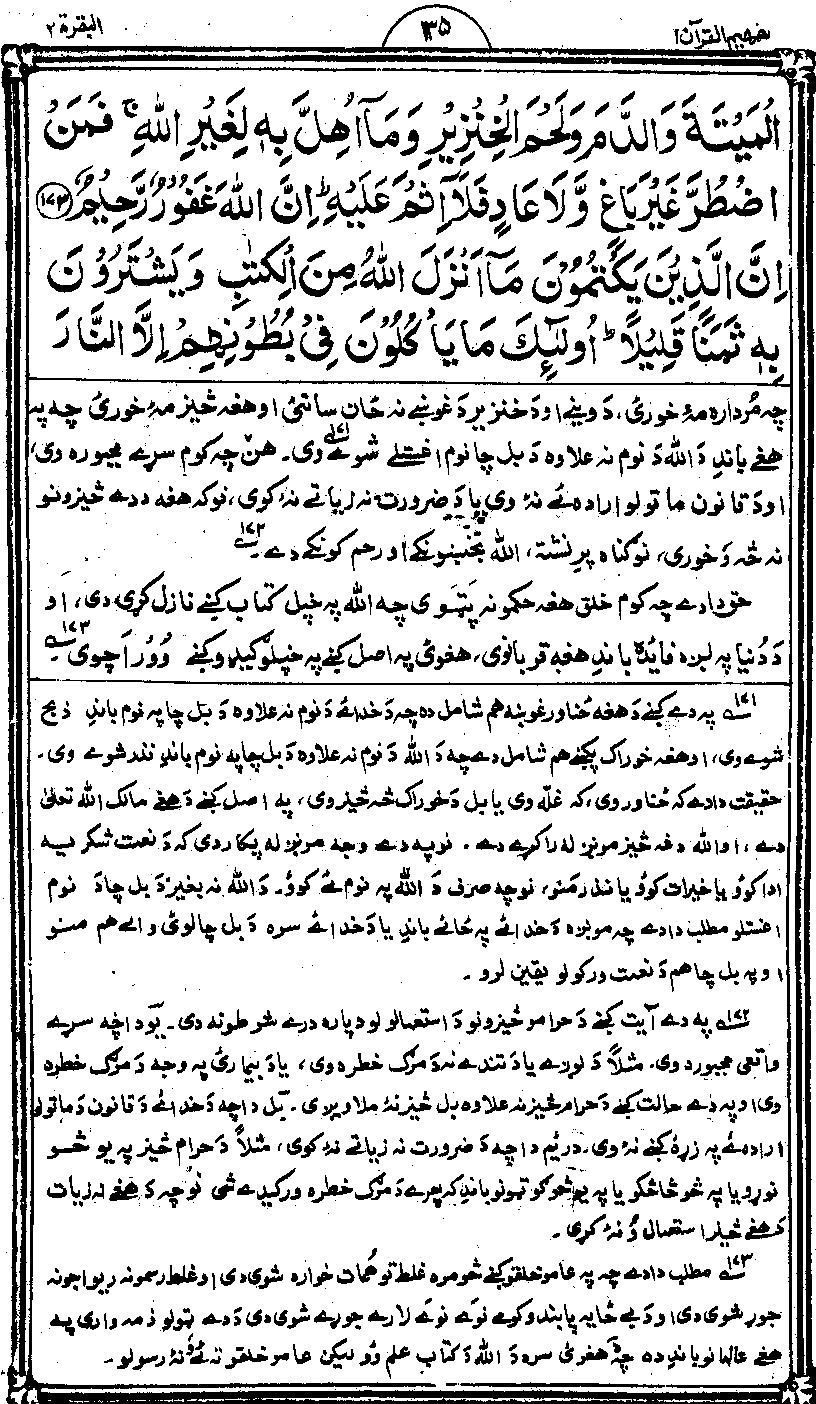 تفهيم القرآن ا
۳۵
البقرة ۲
الْمَيْتَةَ وَالدَّمَ وَلَحْمَ الْخِنْزِيْرِ وَمَآ اُهِلَّ بِهٖ لِغَيْرِ اللّٰهِ ۚ فَمَنِ
اضْطُرَّ غَيْرَ بَاغٍ وَّلَا عَادٍ فَلَآ اِثْمَ عَلَيْهِ ؕ اِنَّ اللّٰهَ غَفُوْرٌ رَّحِيْمٌ ﴿۱۷۳﴾
اِنَّ الَّذِيْنَ يَكْتُمُوْنَ مَآ اَنْزَلَ اللّٰهُ مِنَ الْكِتٰبِ وَيَشْتَرُوْنَ
بِهٖ ثَمَنًا قَلِيْلًا ؕ اُولٰٓئِكَ مَا يَاْكُلُوْنَ فِيْ بُطُوْنِهِمْ اِلَّا النَّارَ
چه مُرداره مۀ خورئ، دَ وينے او دَ خنزير دَ غوښے نه ځان ساتئ او هغه څيز مۀ خورئ چه په
هغے باندِ دَ الله دَ نوم نه علاوه دَ بل چا نوم اغستلے شوے وى۔ ۱۷۱ هن چه کوم سړے مجبوره وى،
او دَ قانون ماتولو اراده ئے نۀ وى يا دَ ضرورت نه زياتے نۀ کوى، نو که هغه د دے څيزونو
نه څه وَ خورى، نو ګناه پرِ نشته، الله بخښونکے او رحم کونکے دے۔ ۱۷۲
حق دا دے چه کوم خلق هغه حکمونه پټوى چه الله په خپل کتاب کښے نازل کړى دى، او
دَ دُنيا په لږه فائده باندِ هغه قربانوى، هغوئ په اصل کښے په خپلو ګيډو کښے وُور اچوى۔ ۱۷۳
۱۷۱ په دے کښے دَ هغه ځناور غوښه هم شامل ده چه دَ خدائے دَ نوم نه علاوه دَ بل چا په نوم باندِ ذبح
شوے وى، او هغه خوراک پکښے هم شامل دے چه دَ الله دَ نوم نه علاوه دَ بل چا په نوم باندِ نذر شوے وى۔
حقيقت دا دے که ځناور وى، که غلّه وى يا بل دَ خوراک څه څيز وى، په اصل کښے دَ هغے مالک الله تعالىٰ
دے، او الله دغه څيز مونږ له راکړے دے۔ نو په دے وجه مونږ له پکار دى که دَ نعمت شکر يے
ادا کوؤ يا خيرات کوؤ يا نذر منو، نو چه صرف دَ الله په نوم ئے کوؤ۔ دَ الله نه بغير دَ بل چا دَ نوم
اغستلو مطلب دا دے چه مونږه دَ خدائے په ځائے باندِ يا دَ خدائے سره دَ بل چا لوئ والے هم منو
او په بل چا هم دَ نعمت ورکولو يقين لرو۔
۱۷۲ په دے آيت کښے دَ حرامو څيزونو دَ استعمالولو دپاره درے شرطونه دى۔ يو دا چه سړے
واقعى مجبوره وى۔ مثلًا دَ لوږے يا دَ تندے نه دَ مرګ خطره وى، يا دَ بيمارئ په وجه دَ مرګ خطره
وى او په دے حالت کښے دَ حرام څيز نه علاوه بل څيز نۀ ملاويږى۔ بل دا چه دَ خدائے دَ قانون دَ ماتولو
اراده ئے په زړۀ کښے نۀ وى۔ درئم دا چه دَ ضرورت نه زياتے نۀ کوى، مثلًا دَ حرام څيز په يو څو
نوړو يا په څو څاڅکو يا په يو څو ګوټونو باندِ که چرے دَ مرګ خطره ورکيدے شى نو چه دَ هغے نه زيات
دَ هغے څيز استعمال وُ نۀ کړى۔
۱۷۳ مطلب دا دے چه په عامو خلقو کښے څومره غلط توهمات خواره شوى دى او غلط رسمونه رواجونه
جوړ شوى دى او دَ بے ځايه پابندو کومے نوے نوے لارے جوړے شوى دى دَ دے ټولو ذمه وارى په
هغے عالمانو باندِ ده چه دَ هغوئ سره دَ الله دَ کتاب علم وُو ليکن عامو خلقو ته ئے وُ نۀ رسولو۔